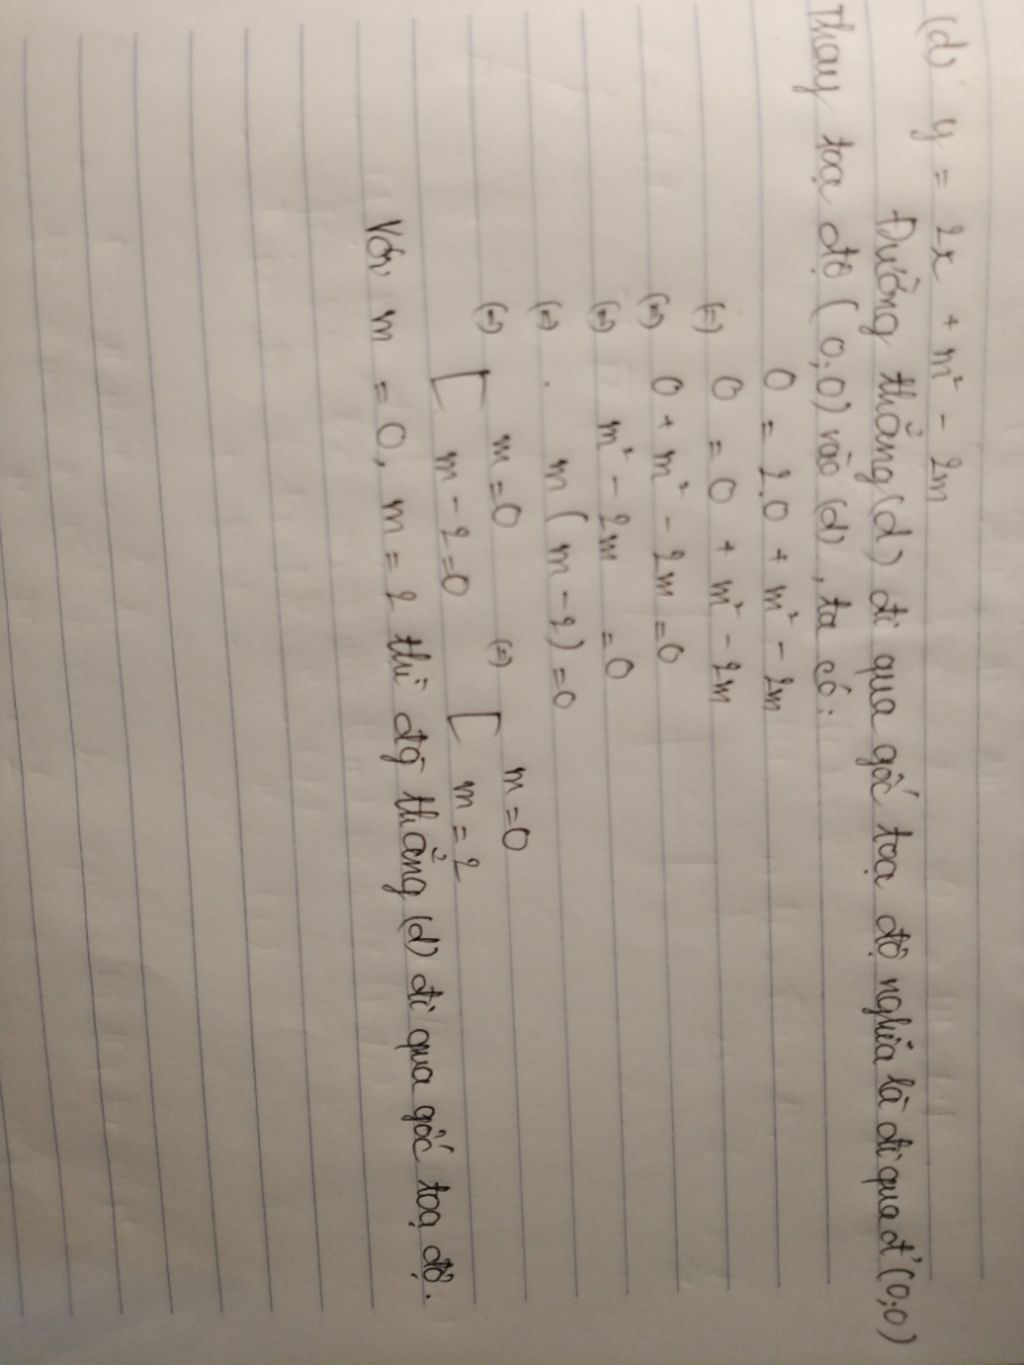 (d) y = 2x + m² - 2m
Đường thẳng (d) đi qua gốc toạ độ nghĩa là đi qua đ' (0;0)
Thay toạ độ (0;0) vào (d), ta có:
0 = 2.0 + m² - 2m
(=) 0 = 0 + m² - 2m
(=) 0 + m² - 2m = 0
(=) m² - 2m = 0
(=) m (m - 2) = 0
(=) [ m = 0 (=) [ m = 0
m - 2 = 0 m = 2
Với m = 0, m = 2 thì đg thẳng (d) đi qua gốc toạ độ.